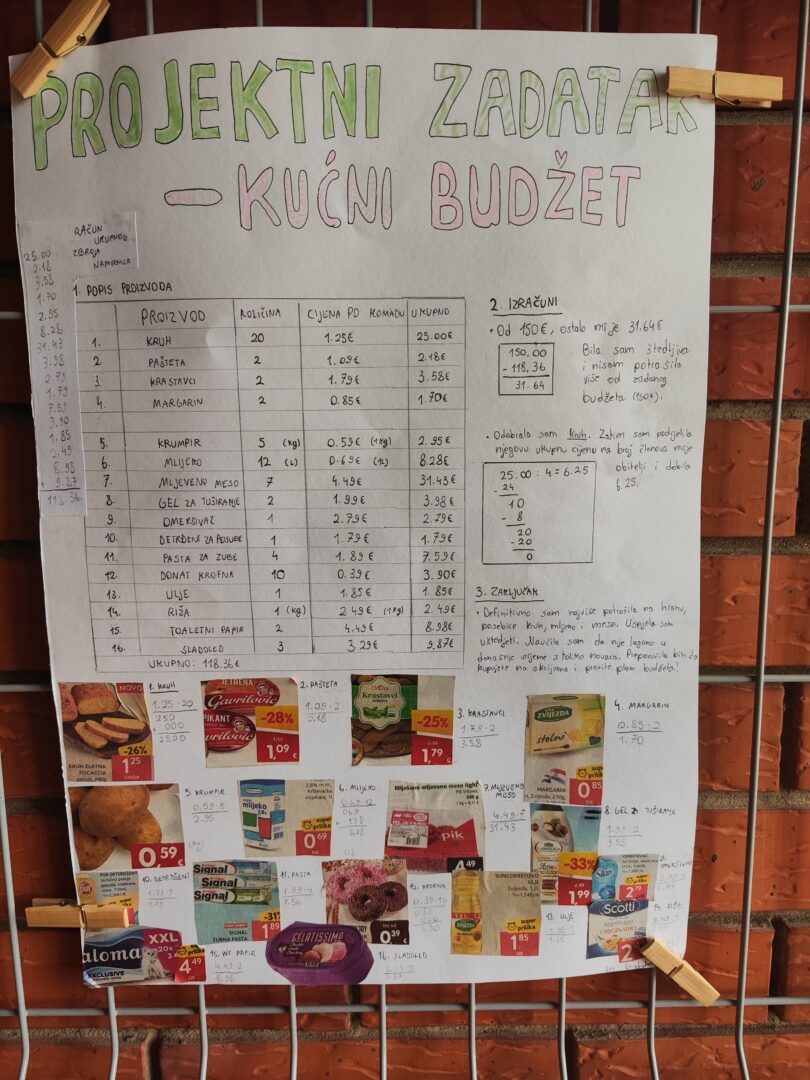 PROJEKTNI ZADATAK
- KUĆNI BUDŽET
RAČUN
UKUPNOG
ZBROJA
NAMIRNICA
25.00
2.18
3.58
1.70
2.95
8.28
31.43
3.98
2.79
1.79
7.59
3.90
1.85
2.49
8.98
+ 9.87
118.36
1. POPIS PROIZVODA
PROIZVOD KOLIČINA CIJENA PO KOMADU UKUPNO
1. KRUH 20 1.25€ 25.00€
2. PAŠTETA 2 1.09€ 2.18€
3. KRASTAVCI 2 1.79€ 3.58€
4. MARGARIN 2 0.85€ 1.70€
5. KRUMPIR 5 (kg) 0.59€ (1kg) 2.95€
6. MLIJEKO 12 (L) 0.69€ (1L) 8.28€
7. MLJEVENO MESO 7 4.49€ 31.43€
8. GEL ZA TUŠIRANJE 2 1.99€ 3.98€
9. OMEKŠIVAČ 1 2.79€ 2.79€
10. DETRĐENT ZA POSUĐE 1 1.79€ 1.79€
11. PASTA ZA ZUBE 4 1.89€ 7.59€
12. DONAT KROFNA 10 0.39€ 3.90€
13. ULJE 1 1.85€ 1.85€
14. RIŽA 1 (kg) 2.49€ (1kg) 2.49€
15. TOALETNI PAPIR 2 4.49€ 8.98€
16. SLADOLED 3 3.29€ 9.87€
UKUPNO: 118.36€
2. IZRAČUNI
• Od 150€, ostalo mi je 31.64€
150.00
- 118.36
31.64
Bila sam štedljiva
i nisam potrošila
više od zadanog
budžeta (150€).
• Odabrala sam kruh. Zatim sam podijelila
njegovu ukupnu cijenu na broj članova moje
obitelji i dobila
6.25.
25.00 : 4 = 6.25
- 24
10
- 8
20
- 20
0
3. ZAKLJUČAK
• Definitivno sam najviše potrošila na hranu,
posebice kruh, mlijeko i meso. Uspjela sam
uštedjeti. Naučila sam da nije lagano u
današnje vrijeme s toliko novaca. Preporučila bih da
kupujete na akcijama i pravite plan budžeta!
NOVO
-26%
1 25
KRUH ZLATNA
FOCACCIA
1. KRUH
1.25 · 20
250
+ 000
25.00
JETRENA
Gavrilović
PIKANT
Gavrilović
-28%
1,09 €
2. PAŠTETA
1.09 · 2
2.18
Krastavci
-25%
1,79
3. KRASTAVCI
1.79 · 2
3.58
ZVIJEZDA
stolni
MARGARIN
Zvijezda, 250g
super
prilika
0 85
4. MARGARIN
0.85 · 2
1.70
0 59
5. KRUMPIR
0.59 · 5
2.95
(kg)
mlijeko
2,8% m.m.
super
prilika
0 69
6. MLIJEKO
0.69 · 12
069
+ 138
8.28
Miješano mljeveno meso light
pik
4,49
7. MLJEVENO
MESO
4.49 · 7
31.43
-33%
1 99
8. GEL ZA TUŠIRANJE
1.99 · 2
3.98
OMEKŠIVAČ
super
prilika
2 79
9.
OMEKŠIVAČ
PUR DETERDŽENT
10. DETRĐENT
1.79 · 1
1.79
Signal
Signal
Signal
SIGNAL
ZUBNA PASTA
1 89
11. PASTA
1.89 · 4
7.56
0 39
12. KROFNA
0.39 · 10
3.90
SUNCOKRETOVO
ULJE
Zvijezda, 1 L
ZVIJEZDA
super
prilika
1 85
13. ULJE
1.85 · 1
1.85
Scotti
ORIGINARIO
14. RIŽA
paloma
EXCLUSIVE
XXL
20x
super
prilika
4 49
15. WC PAPIR
4.49 · 2
8.98
GELATISSIMO
16. SLADOLED
3.29 · 3
9.87